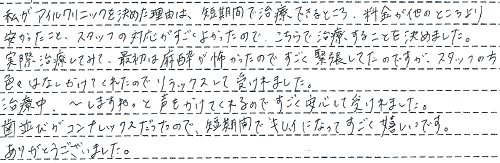 私がアイルクリニックを決めた理由は、短期間で治療できるところ、料金が他のところより
安かったこと、スタッフの対応がすごくよかったので、こちらで治療することを決めました。
実際治療してみて、最初は麻酔が怖かったのですごく緊張してたのですが、スタッフの方
色々はなしかけてくれたのでリラックスして受けれました。
治療中、～しますね。と声をかけてくれるのですごく安心して受けれました。
歯並びがコンプレックスだったので、短期間でキレイになってすごく嬉しいです。
ありがとうございました。